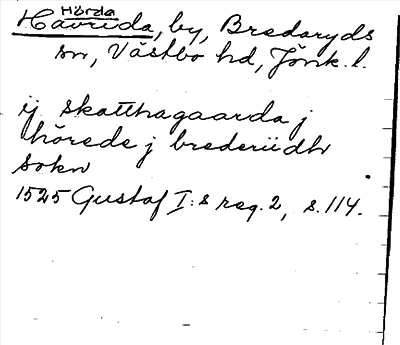 Hörda
Håvrida, by, Bredaryds
sn, Västbo hd, Jönk. l.
ij skatthagaarda j
hörede j brederiidh
sokn
1525 Gustaf I:s reg. 2, s. 114.